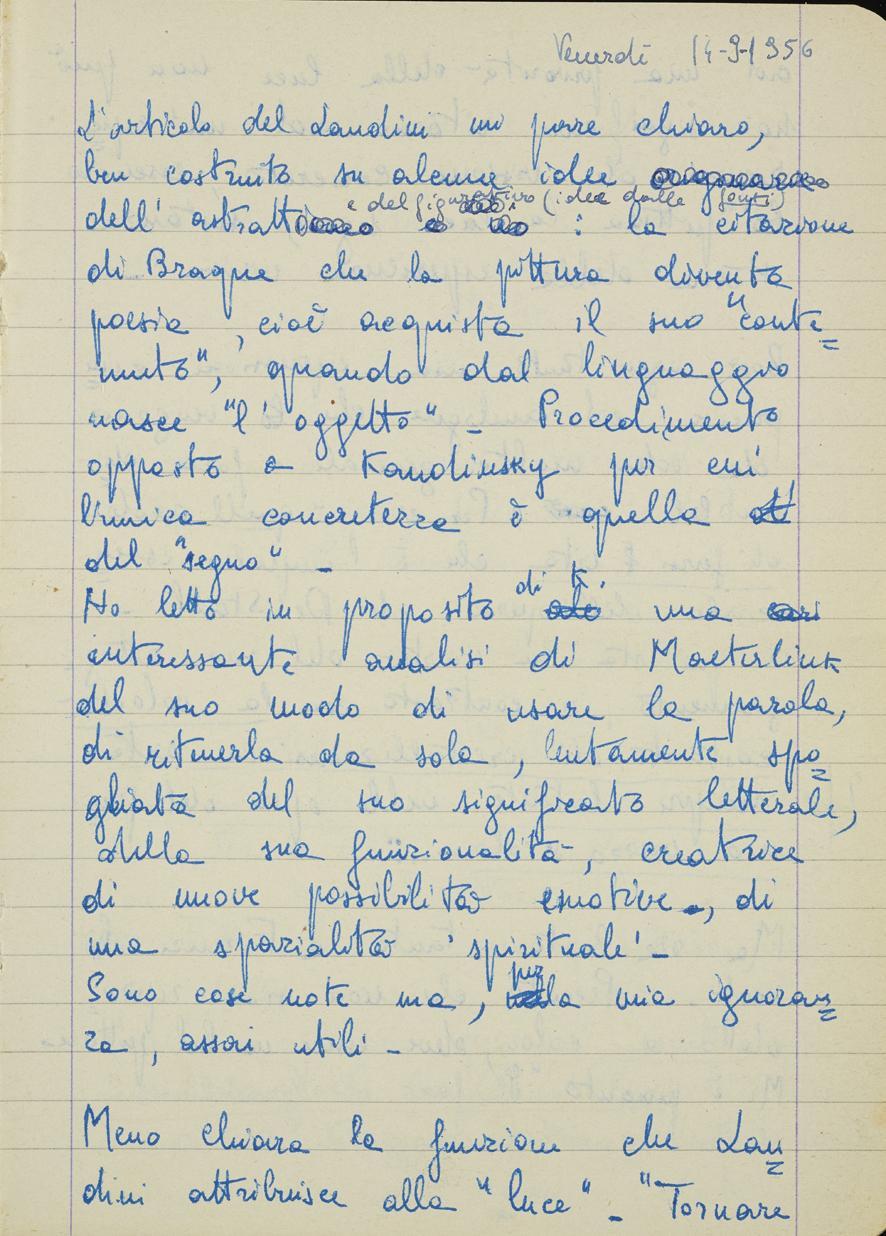 Venerdì 14-9-1956
L'articolo del Landini mi pare chiaro,
ben costruito su alcune idee
e del figurativo (idee dalle fonti)
dell'astratto : la citazione
di Braque che la pittura diventa
poesia, cioè acquista il suo "conte=
nuto", quando dal linguaggio
nasce "l'oggetto" - Procedimento
opposto a Kandinsky per cui
l'unica concretezza è quella
del "segno" -
Ho letto in proposito di K. una
interessante analisi di Maeterlink
del suo modo di usare la parola,
di ritenerla da sola, lentamente spo=
gliata del suo significato letterale,
della sua funzionalità, creatrice
di nuove possibilità emotive, di
una spazialità 'spirituale' -
Sono cose note ma, per la mia ignoran=
za, assai utili -
Meno chiara la funzione che Lan=
dini attribuisce alla "luce" - "Tornare